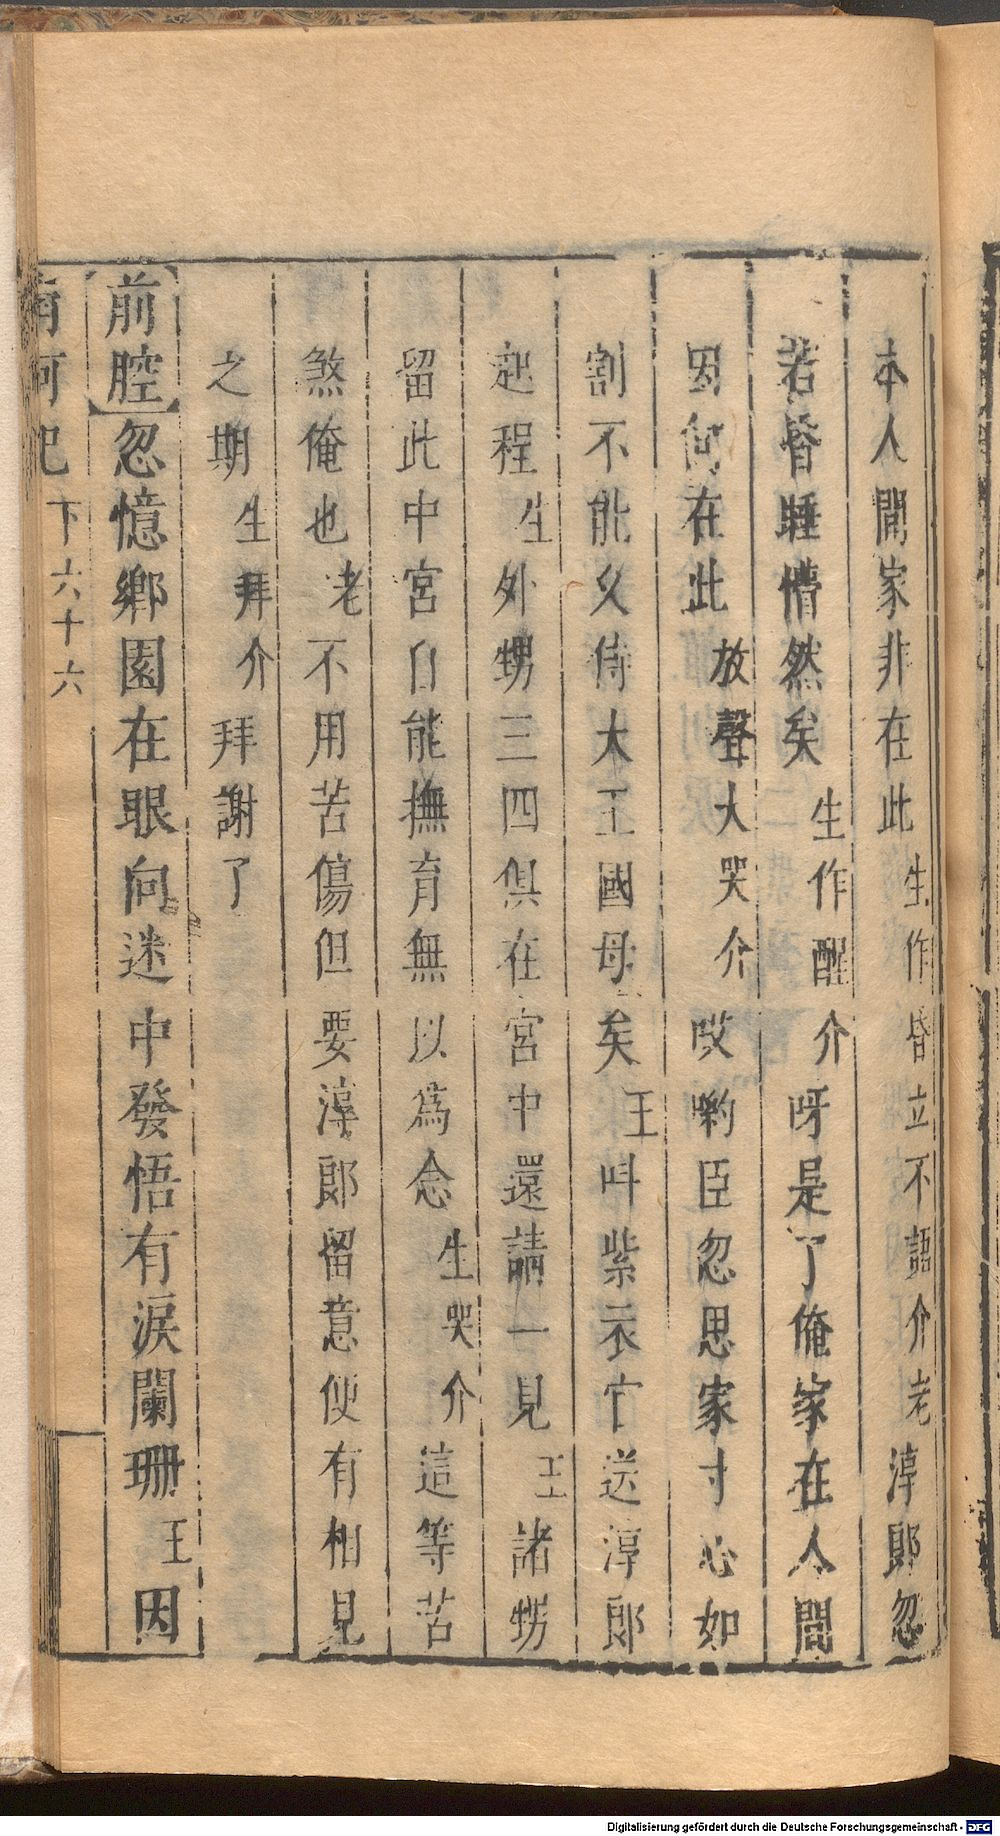 本人間家非在此生作昏立不語介老淳郎忽
若昏睡懵然矣生作醒介呀是了俺家在人間
因何在此放聲大哭介哎喲臣忽思家寸心如
割不能久侍大王國母矣王叫紫衣官送淳郎
起程生外甥三四俱在宮中還請一見王諸甥
留此中宮自能撫育無以為念生哭介這等苦
煞俺也老不用苦傷但要淳郎留意便有相見
之期生拜介拜謝了
【前腔】忽憶鄉園在眼向迷中發悟有淚闌珊王因
南柯記 下 六十六
Digitalisierung gefördert durch die Deutsche Forschungsgemeinschaft - DFG